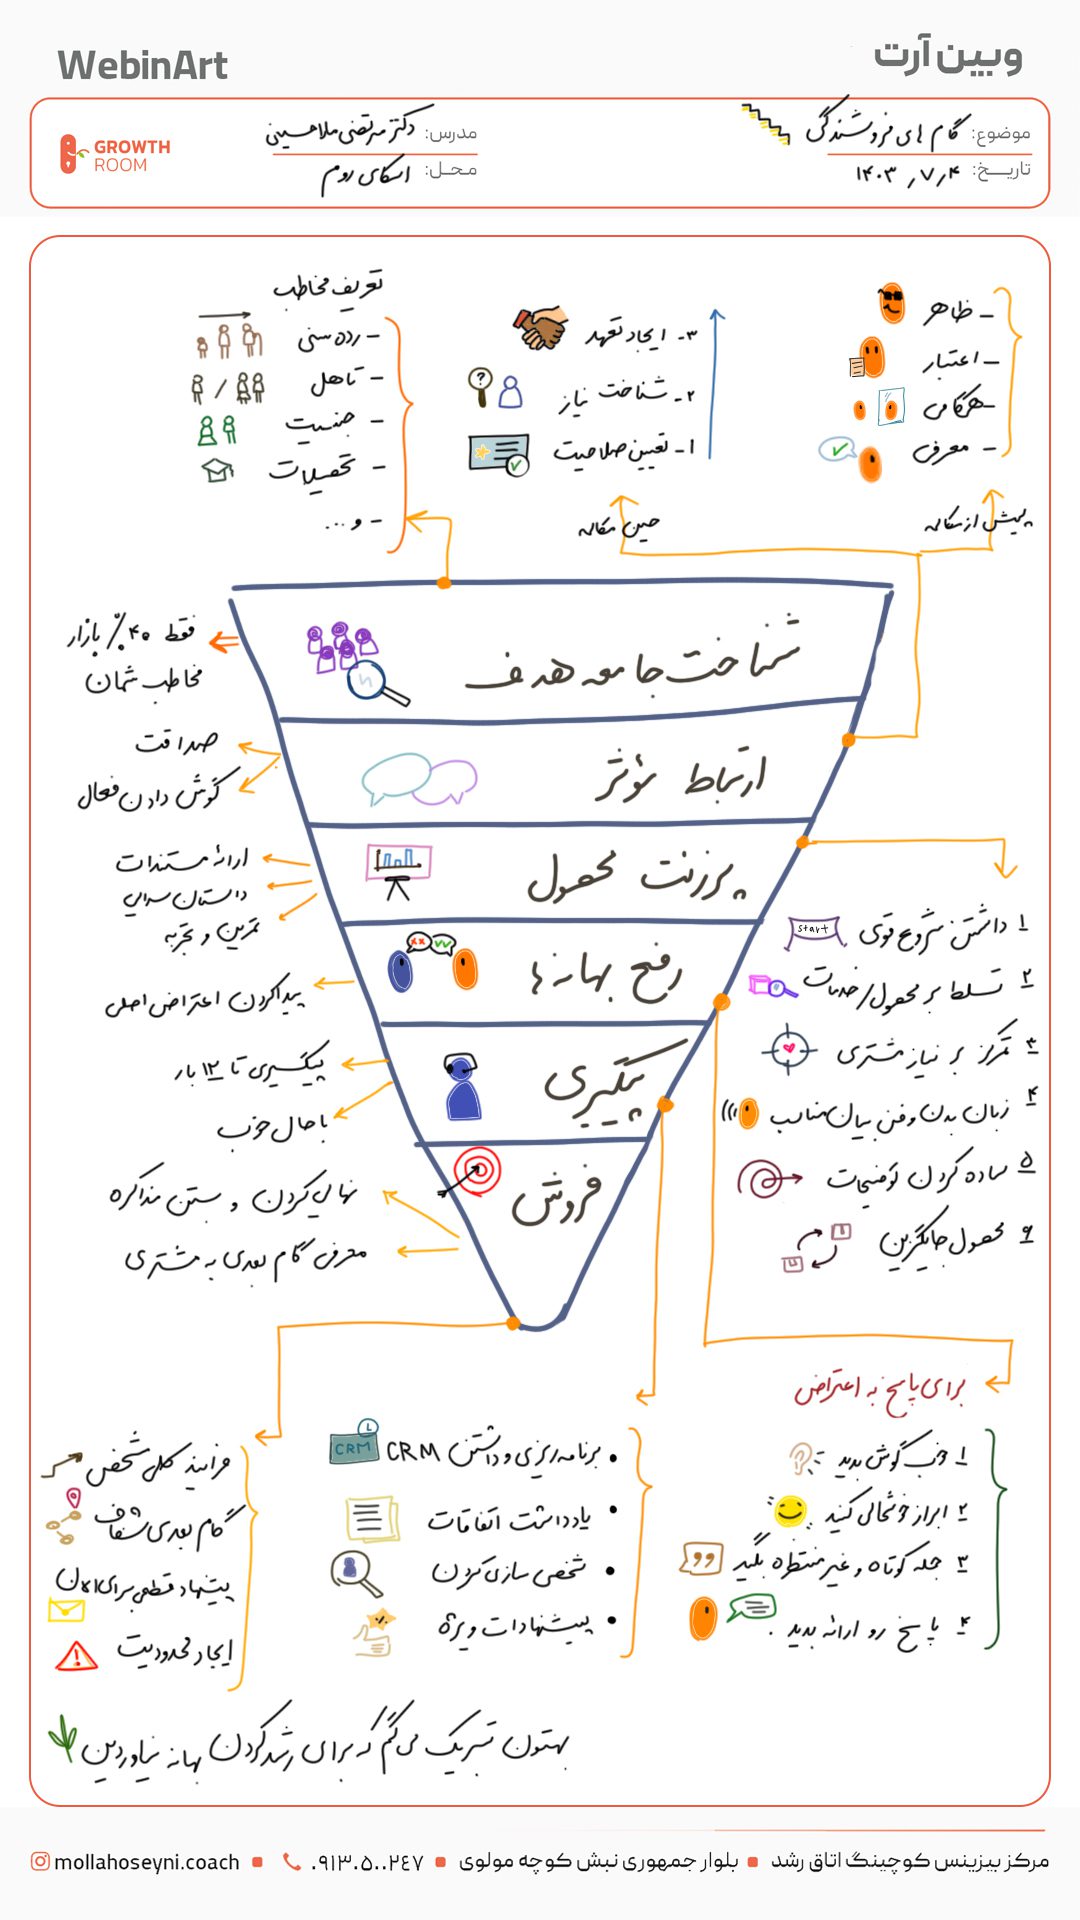 WebinArt
وبین آرت
موضوع: گام های فروشندگی
مدرس: دکتر مرتضی ملاحسینی
GROWTH ROOM
تاریخ: ۱۴۰۳٫۷٫۴
محل: اسکای روم
- ظاهر
- اعتبار
- همگامی
- معرفی
پیش از مکالمه
۳- ایجاد تعهد
۲- شناخت نیاز
۱- تعیین صلاحیت
حین مکالمه
تعریف مخاطب
- رده سنی
- تاهل
- جنسیت
- تحصیلات
- و...
شناخت جامعه هدف
فقط ۴۰٪ بازار
مخاطب شمان
ارتباط مؤثر
صداقت
گوش دادن فعال
پرزنت محصول
ارائه مستندات
داستان سرایی
تمرین و تجربه
رفع بهانه ها
xx
پیدا کردن اعتراض اصلی
پیگیری
پیگیری تا ۱۲ بار
با حال خوب
فروش
نهایی کردن و بستن مذاکره
معرفی گام بعدی به مشتری
۱ داشتن شروع قوی
start
۲ تسلط بر محصول/خدمات
۳ تمرکز بر نیاز مشتری
۴ زبان بدن و فن بیان مناسب
۵ ساده کردن توضیحات
۶ محصول جایگزین
برای پاسخ به اعتراض
۱ خوب گوش بدید
۲ ابراز خوشحالی کنید
۳ جمله کوتاه و غیرمنتظره بگید
۴ پاسخ رو ارائه بدید.
• برنامه ریزی و داشتن CRM
CRM
• یادداشت اتفاقات
• شخصی سازی کردن
• پیشنهادات ویژه
%
فرایند کلی مشخص
گام بعدی شفاف
پیشنهاد قطعی برای الان
ایجاد محدودیت
بهتون تبریک می‌گم که برای رشد کردن بهانه نیاوردین
مرکز بیزینس کوچینگ اتاق رشد ▪ بلوار جمهوری نبش کوچه مولوی ▪ ۰۹۱۳۰۵۰۰۲۴۷ ▪ mollahoseyni.coach